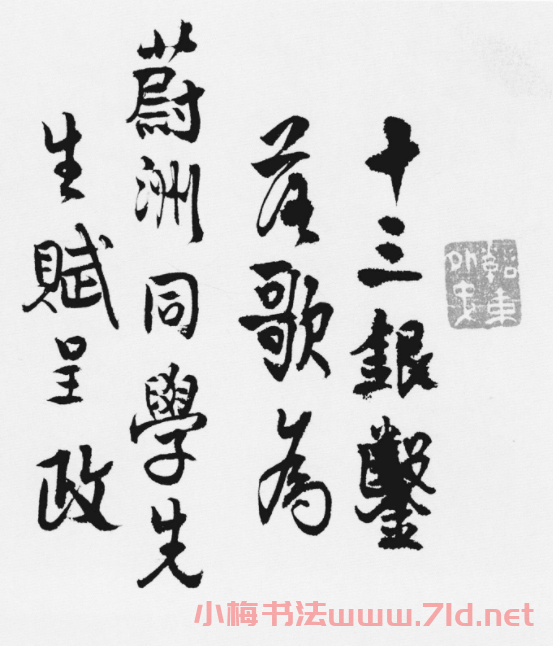 十三銀鑿
落歌為
蔚洲同學先
生賦呈政
小梅书法www.7ld.net